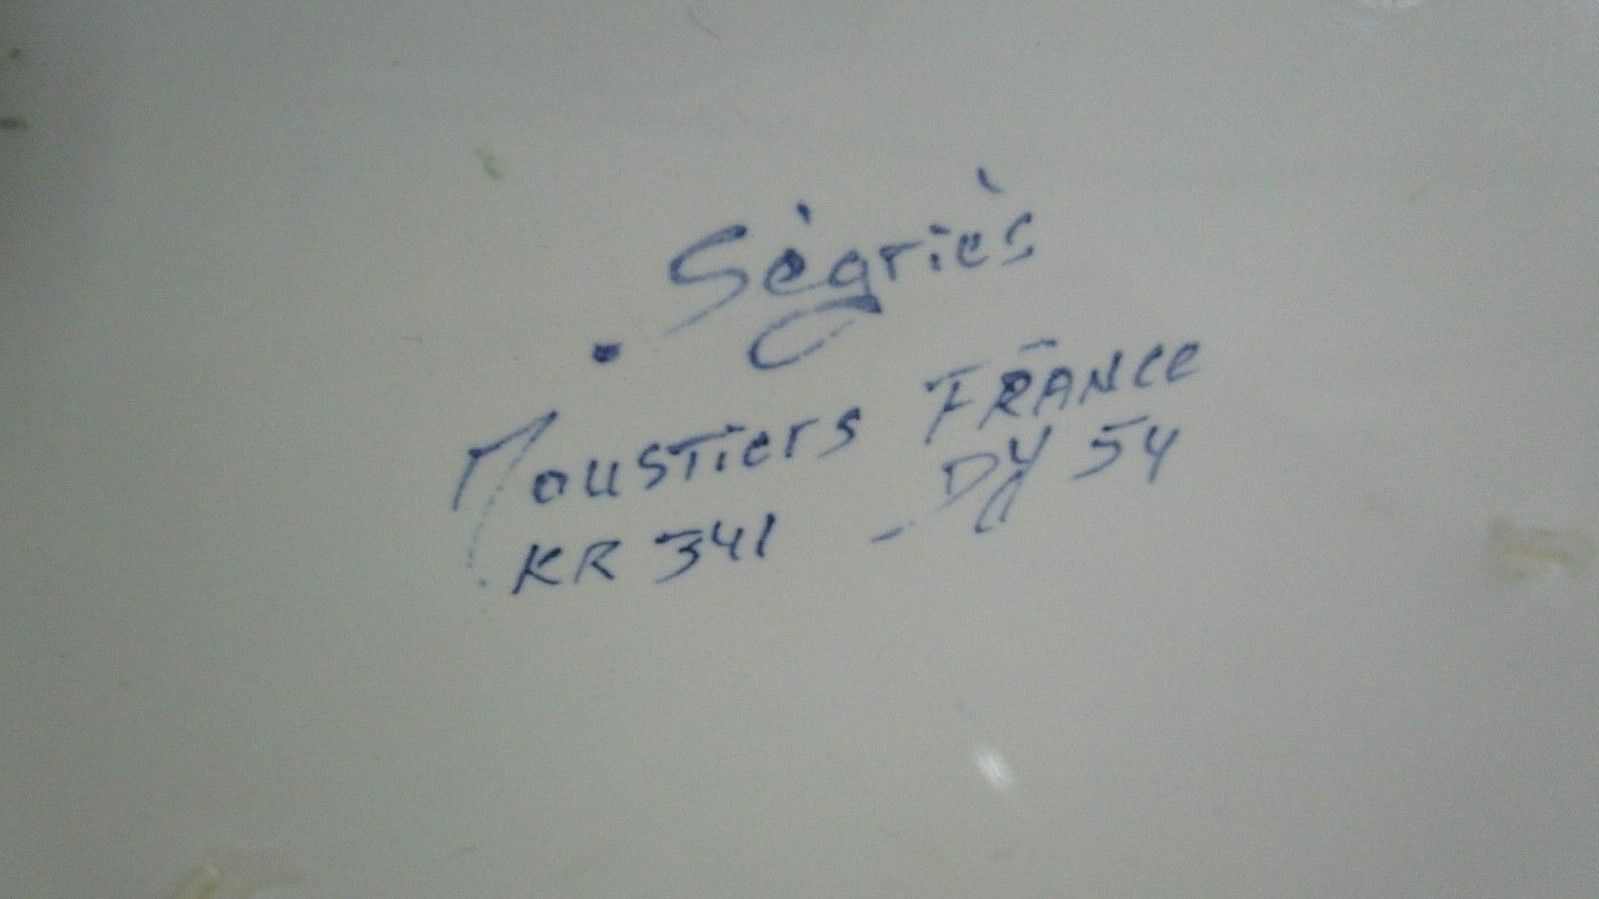 Sègriès
Moustiers FRANCE
KR 341 - DY 54